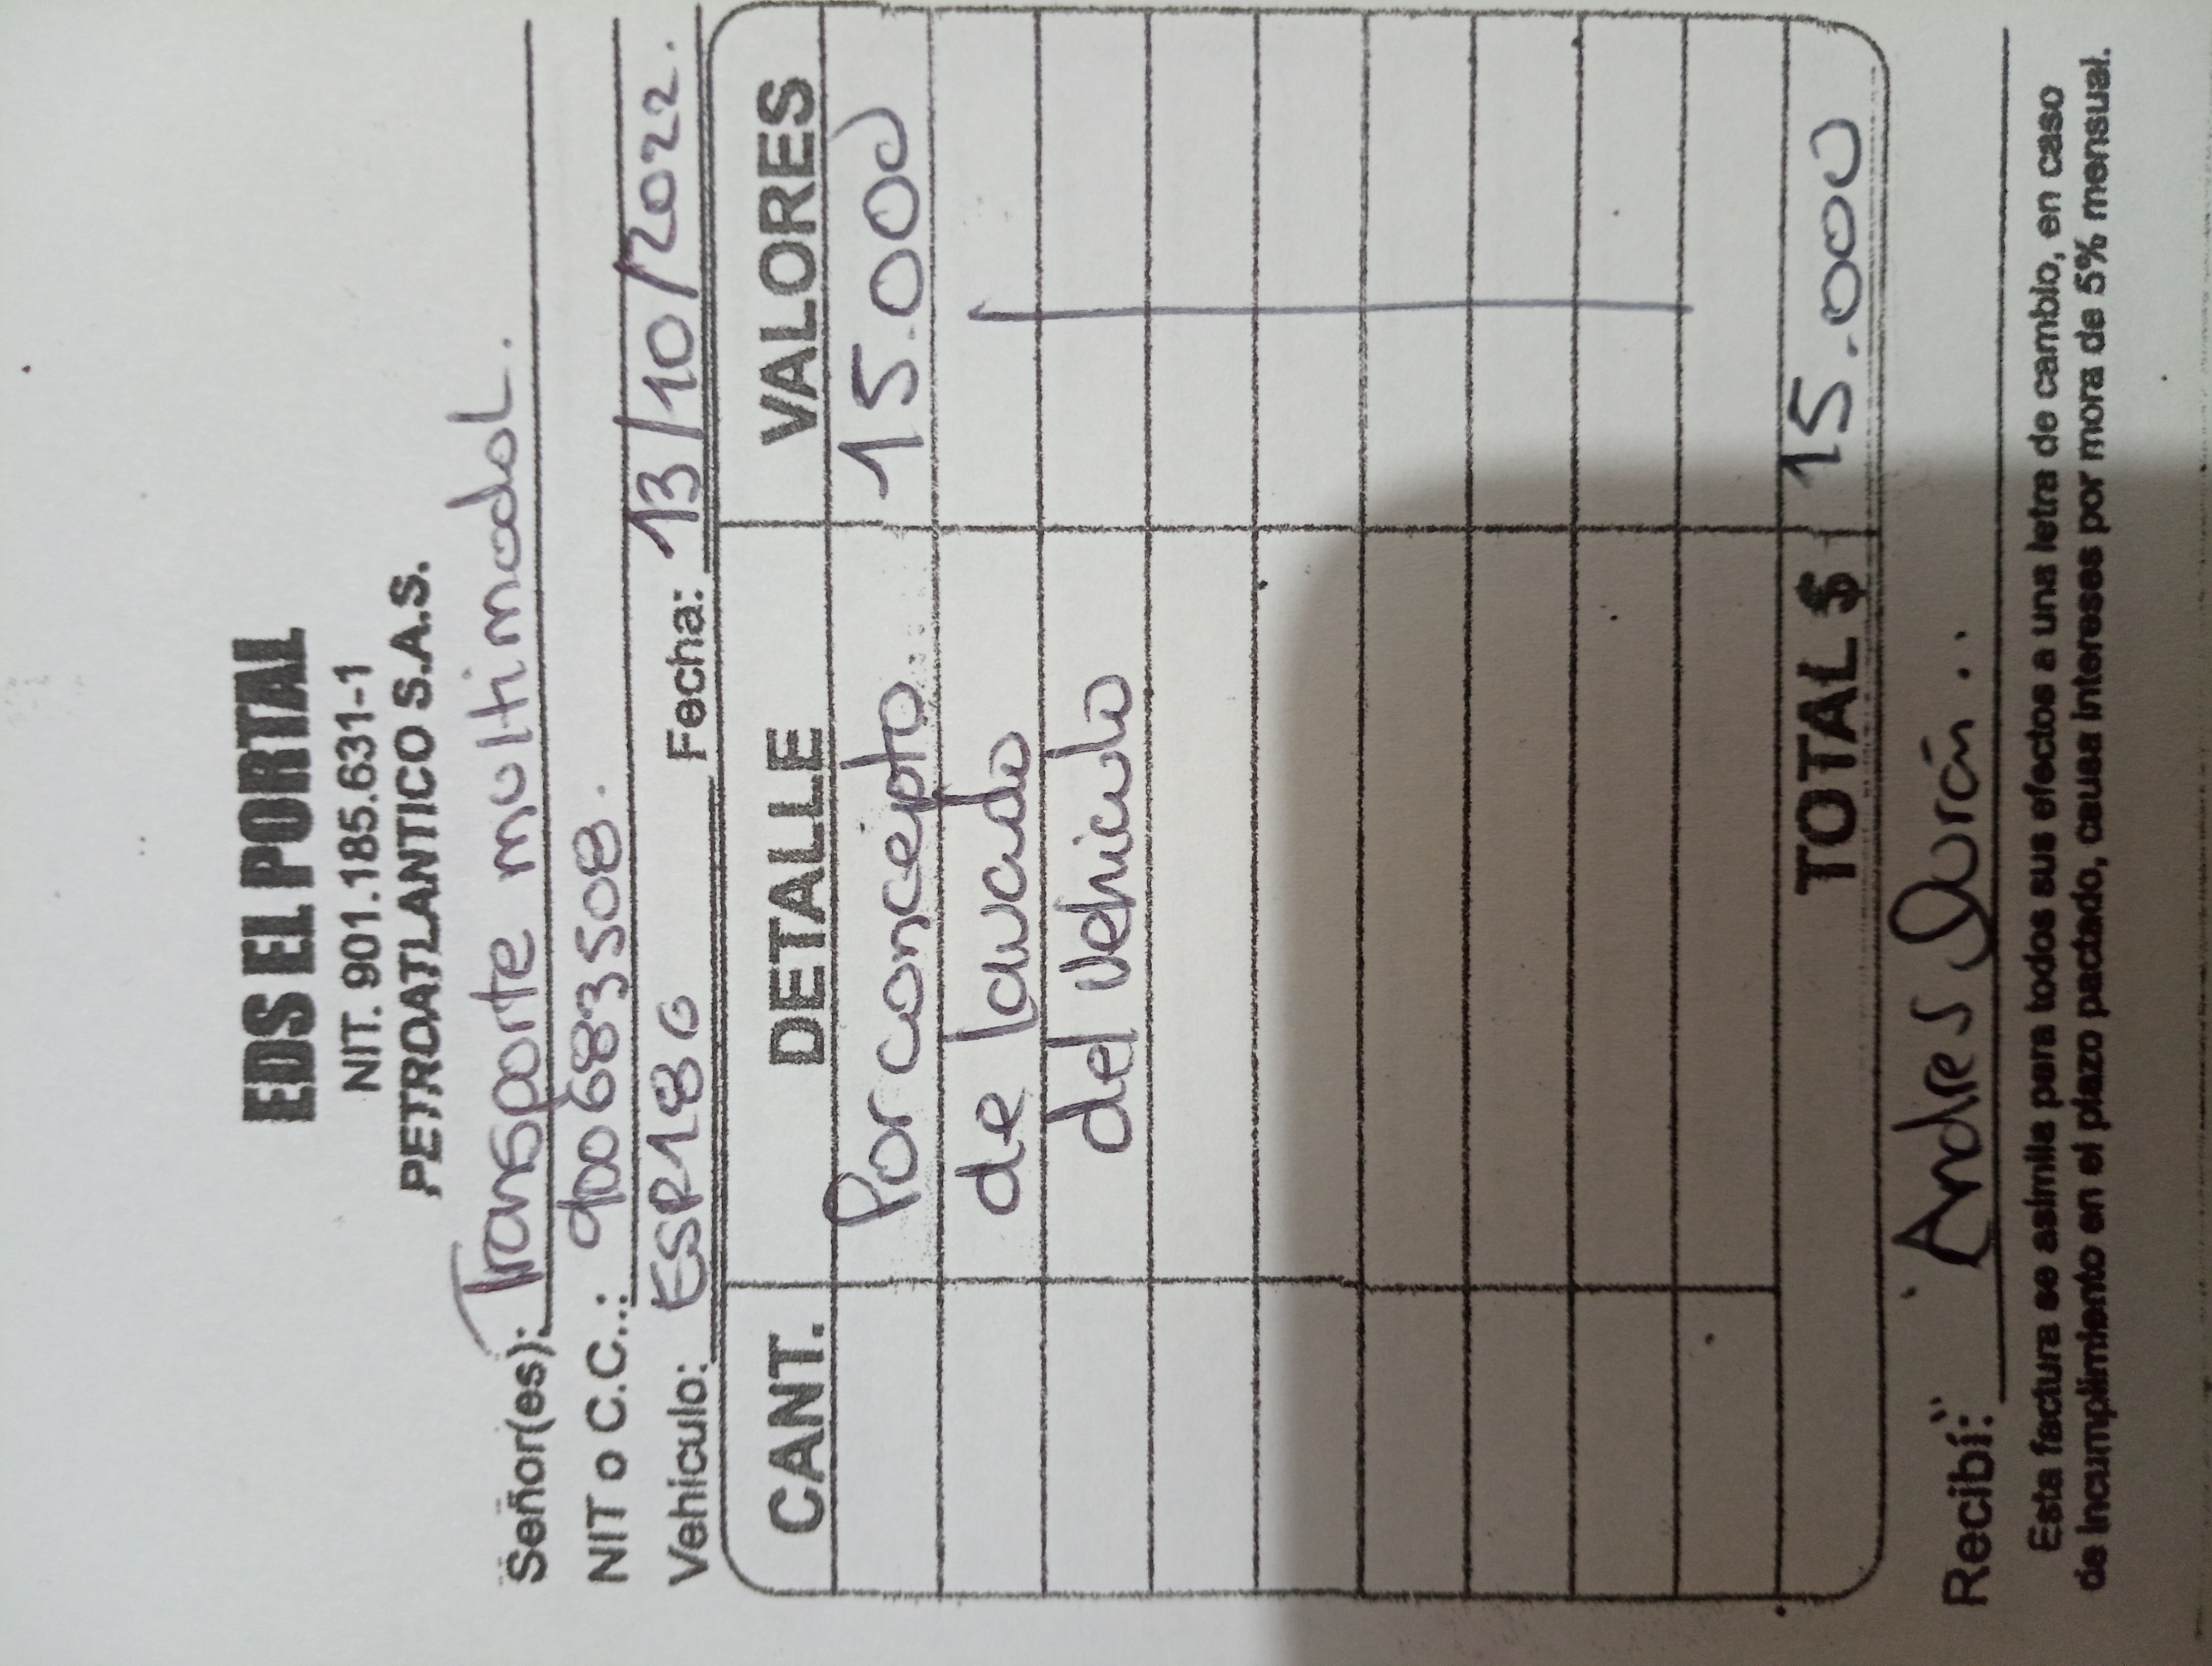 EDS EL PORTAL
NIT. 901.185.631-1
PETROATLANTICO S.A.S.
Señor(es): Transporte multimodal.
NIT o C.C.: 900683508.
Vehiculo: ESR186 Fecha: 13/10/2022.
CANT. DETALLE VALORES
Por concepto 15.000
de lavado
del vehiculo
TOTAL $ 15.000
Recibí: Andres Durán..
Esta factura se asimila para todos sus efectos a una letra de cambio, en caso
de incumplimiento en el plazo pactado, causa intereses por mora de 5% mensual.